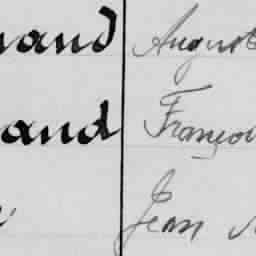 nand Augus
and Françoi
Jean